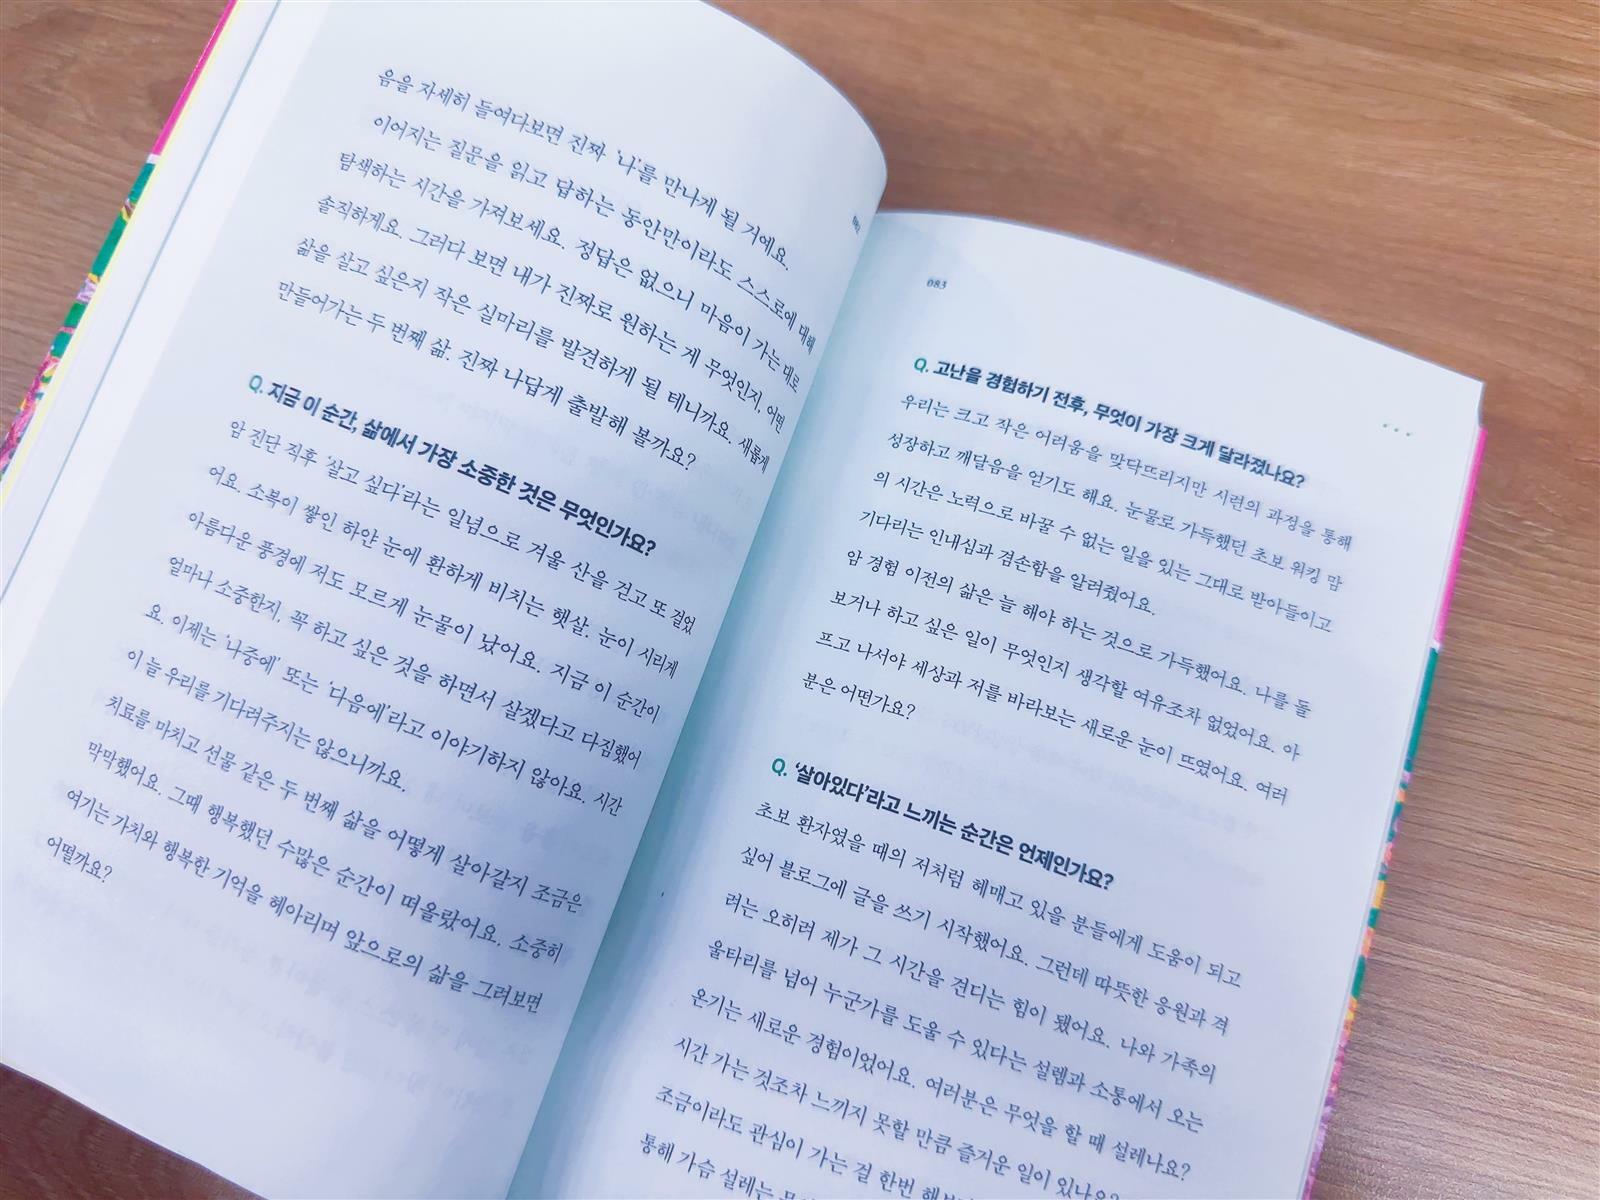 음을 자세히 들여다보면 진짜 '나'를 만나게 될 거예요.
이어지는 질문을 읽고 답하는 동안만이라도 스스로에 대해
탐색하는 시간을 가져보세요. 정답은 없으니 마음이 가는 대로
솔직하게요. 그러다 보면 내가 진짜로 원하는 게 무엇인지, 어떤
삶을 살고 싶은지 작은 실마리를 발견하게 될 테니까요. 새롭게
만들어가는 두 번째 삶. 진짜 나답게 출발해 볼까요?
Q. 지금 이 순간, 삶에서 가장 소중한 것은 무엇인가요?
암 진단 직후 '살고 싶다'라는 일념으로 겨울 산을 걷고 또 걸었
어요. 소복이 쌓인 하얀 눈에 환하게 비치는 햇살. 눈이 시리게
아름다운 풍경에 저도 모르게 눈물이 났어요. 지금 이 순간이
얼마나 소중한지, 꼭 하고 싶은 것을 하면서 살겠다고 다짐했어
요. 이제는 '나중에' 또는 '다음에'라고 이야기하지 않아요. 시간
이 늘 우리를 기다려주지는 않으니까요.
치료를 마치고 선물 같은 두 번째 삶을 어떻게 살아갈지 조금은
막막했어요. 그때 행복했던 수많은 순간이 떠올랐어요. 소중히
여기는 가치와 행복한 기억을 헤아리며 앞으로의 삶을 그려보면
어떨까요?
083
Q. 고난을 경험하기 전후, 무엇이 가장 크게 달라졌나요?
우리는 크고 작은 어려움을 맞닥뜨리지만 시련의 과정을 통해
성장하고 깨달음을 얻기도 해요. 눈물로 가득했던 초보 워킹 맘
의 시간은 노력으로 바꿀 수 없는 일을 있는 그대로 받아들이고
기다리는 인내심과 겸손함을 알려줬어요.
암 경험 이전의 삶은 늘 해야 하는 것으로 가득했어요. 나를 돌
보거나 하고 싶은 일이 무엇인지 생각할 여유조차 없었어요. 아
프고 나서야 세상과 저를 바라보는 새로운 눈이 뜨였어요. 여러
분은 어떤가요?
Q. '살아있다'라고 느끼는 순간은 언제인가요?
초보 환자였을 때의 저처럼 헤매고 있을 분들에게 도움이 되고
싶어 블로그에 글을 쓰기 시작했어요. 그런데 따뜻한 응원과 격
려는 오히려 제가 그 시간을 견디는 힘이 됐어요. 나와 가족의
울타리를 넘어 누군가를 도울 수 있다는 설렘과 소통에서 오는
온기는 새로운 경험이었어요. 여러분은 무엇을 할 때 설레나요?
시간 가는 것조차 느끼지 못할 만큼 즐거운 일이 있나요?
조금이라도 관심이 가는 걸 한번
통해 가슴 설레는